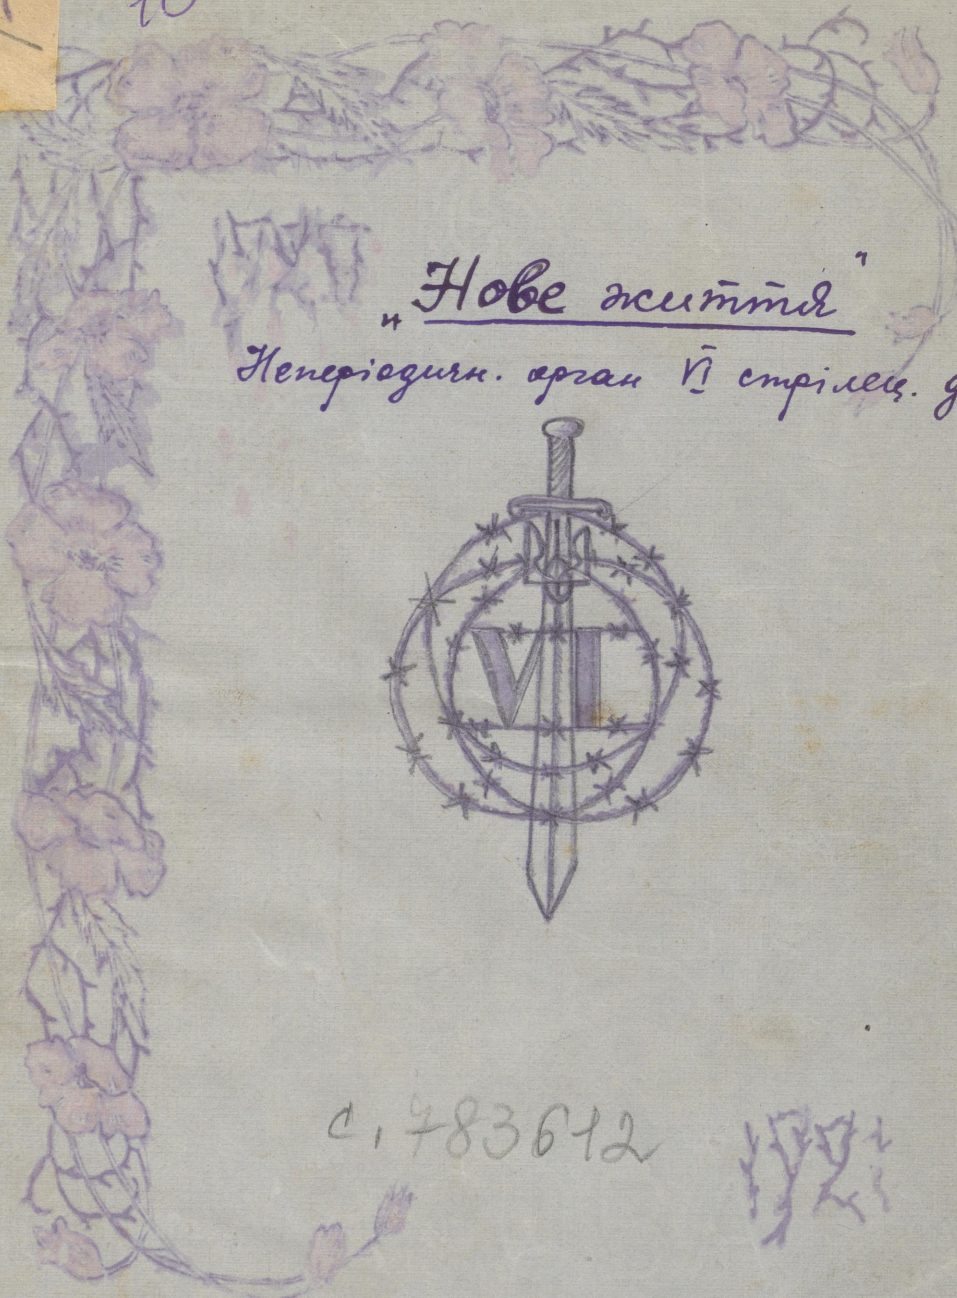 10
„Нове життя"
Неперіодичн. орган VI стрілец. д
VI
с. 783612
1921